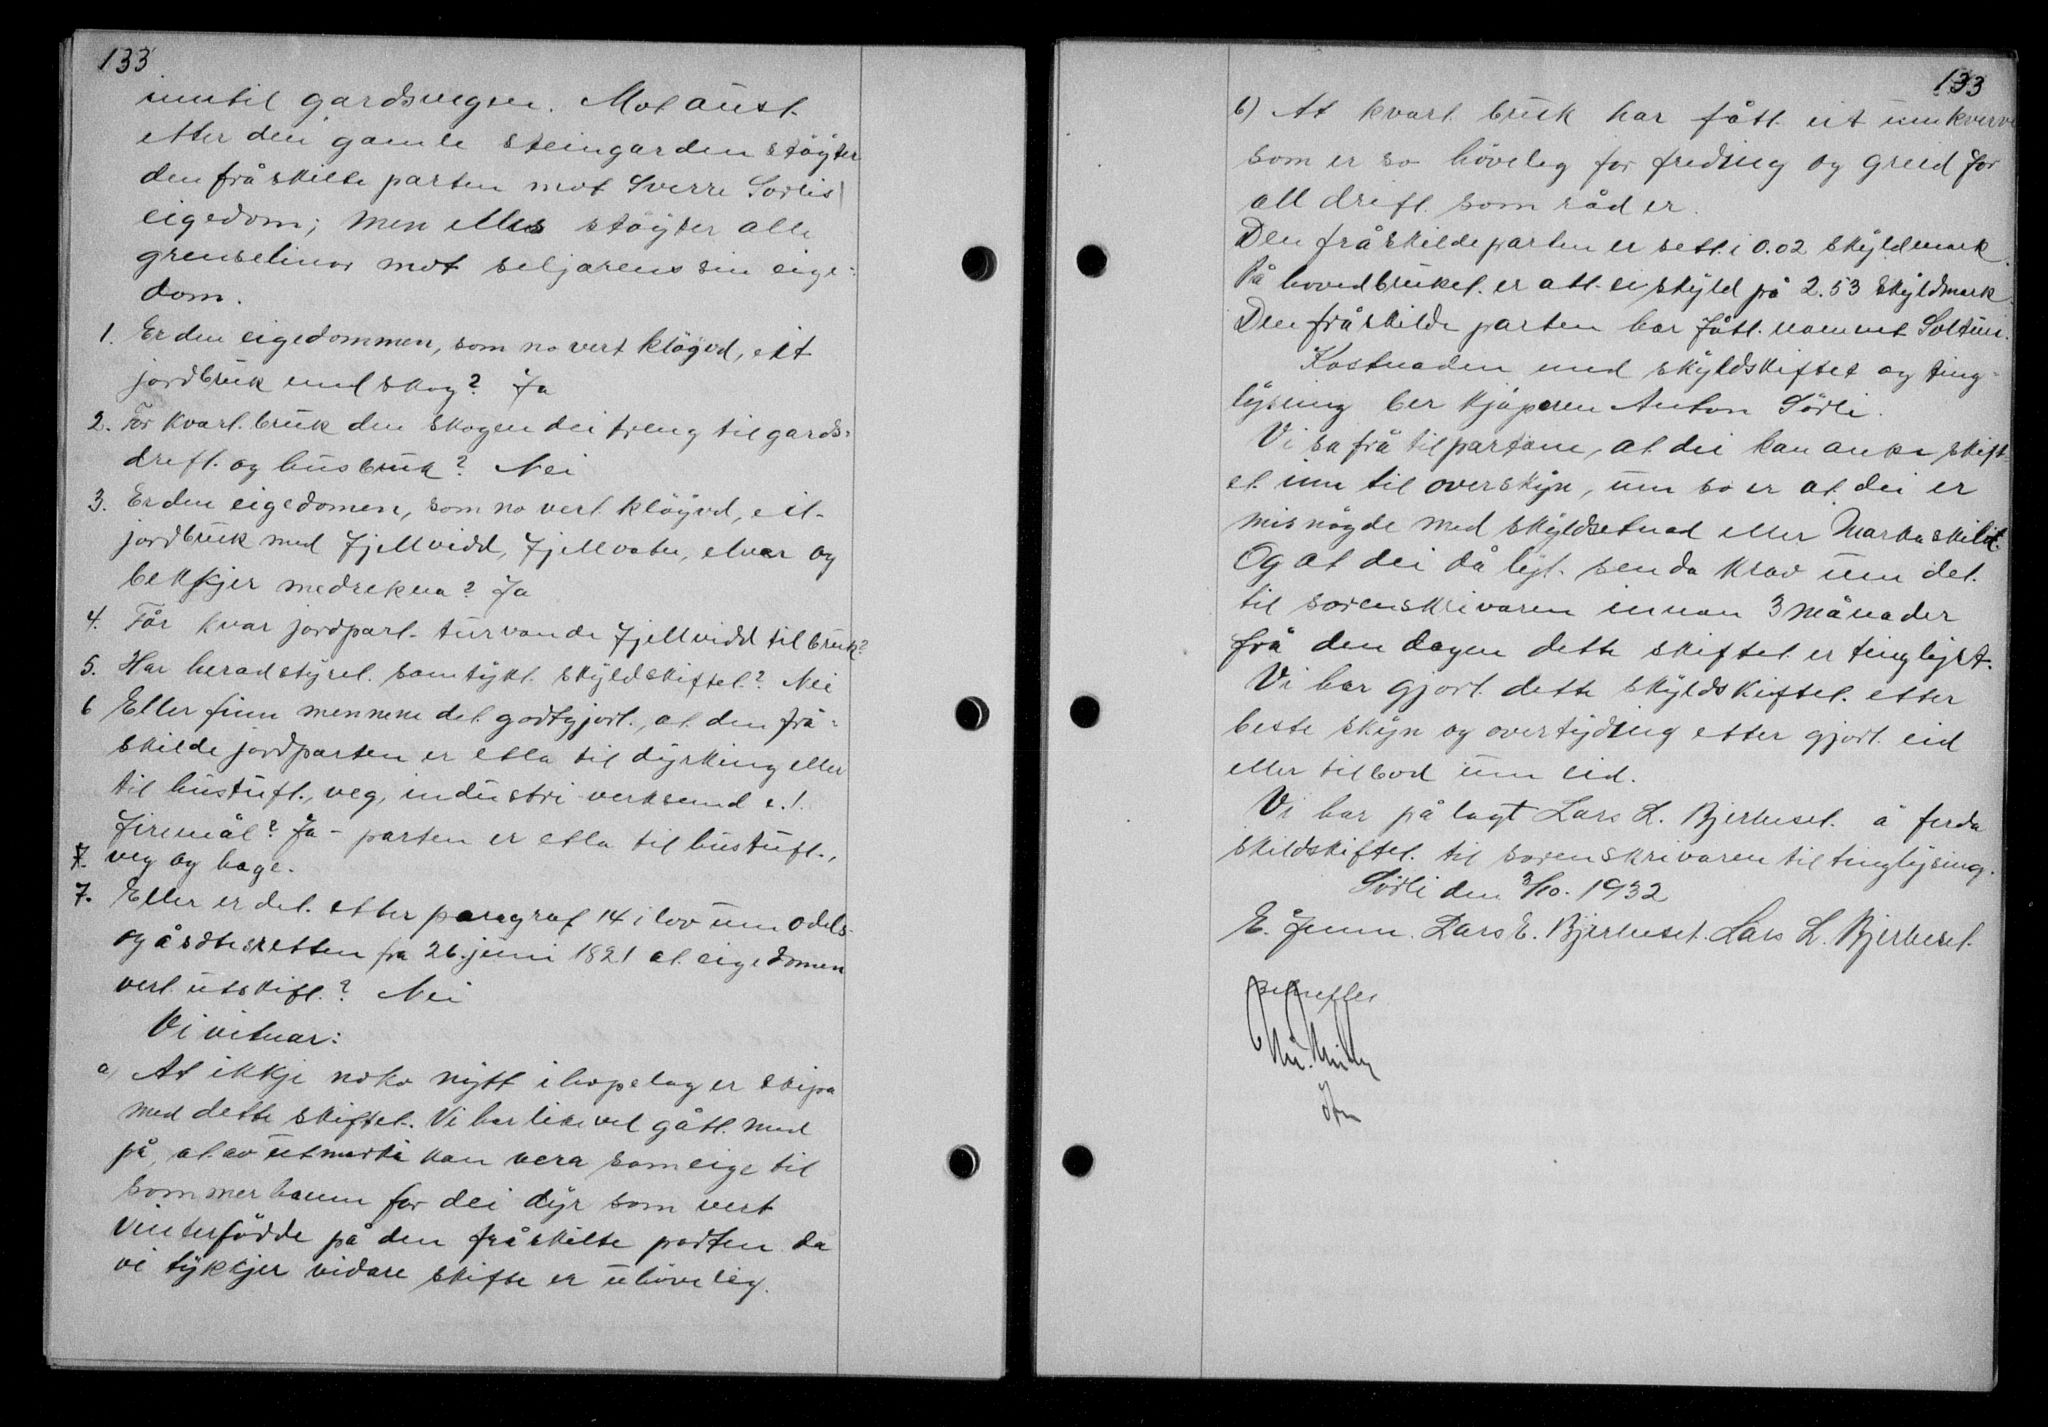 133
inntil gardsvegen. Mot aust
etter den gamle steingarden støyter
den fråskilte parten mot Sverre Sørlis
eigedom; men elles støyter alle
grenselinor mot seljarens sin eige-
dom.
1. Er den eigedommen, som no vert kløyvd, eit
jordbruk med skog? Ja
2. Før kvart bruk den skogen dei treng til gards-
drift og husbruk? Nei
3. Er den eigedomen, som no vert kløyvd, eit
jordbruk med fjellvidd, fjellvatn, elvar og
bekkjer medrekna? Ja
4. Får kvar jordpart turvande fjellvidd til bruk?
5. Har heradstyret samtykt skyldskiftet? Nei
6 Eller finn mennene det godtgjort, at den frå-
skilde jordparten er etla til dyrking eller
til hustuft, veg, industri verksemd e.l.
firemål? Ja - parten er etla til hustuft,
veg og hage.
7. Eller er det etter paragraf 14 i lov um odels-
og åsdtesretten fra 26. juni 1821 at eigedomen
vert utskift? Nei
Vi vitnar:
a) At ikkje noko nytt ihopelag er skipa
med dette skiftet. Vi har likevel gått med
på, at av utmarki kan vera sameige til
sommerhamn for dei dyr som vert
vinterfødde på den fråskilte parten da
vi tykkjer vidare skifte er uhøveleg.
133
b) At kvart bruk har fått eit umkverve
som er so høveleg for freding og greid for
all drift som råd er.
Den fråskilde parten er sett i 0.02 skyldmark.
På hovedbruket er att ei skyld på 2.53 skyldmark
Den fråskilde parten har fått namnet Soltun.
Kostnaden med skyldskiftet og ting-
lysing ber kjøperen Anton Sørli.
Vi sa frå til partane, at dei kan anke skift-
et inn til overskyn, um so er at dei er
misnøgde med skyldsetnad eller markaskilt.
Og at dei då lyt senda krav um det
til sorenskrivaren innan 3 månader
frå den dagen dette skiftet er tinglyst.
Vi har gjort dette skyldskiftet etter
beste skyn og overtyding etter gjort eid
eller tilbod um eid.
Vi har pålagt Lars L. Bjerkeset å ferda
skildskiftet til sorenskrivaren til tinglysing.
Sørli den 3/10. 1932
E. Jenum. Lars E. Bjerkeset. Lars L. Bjerkeset.